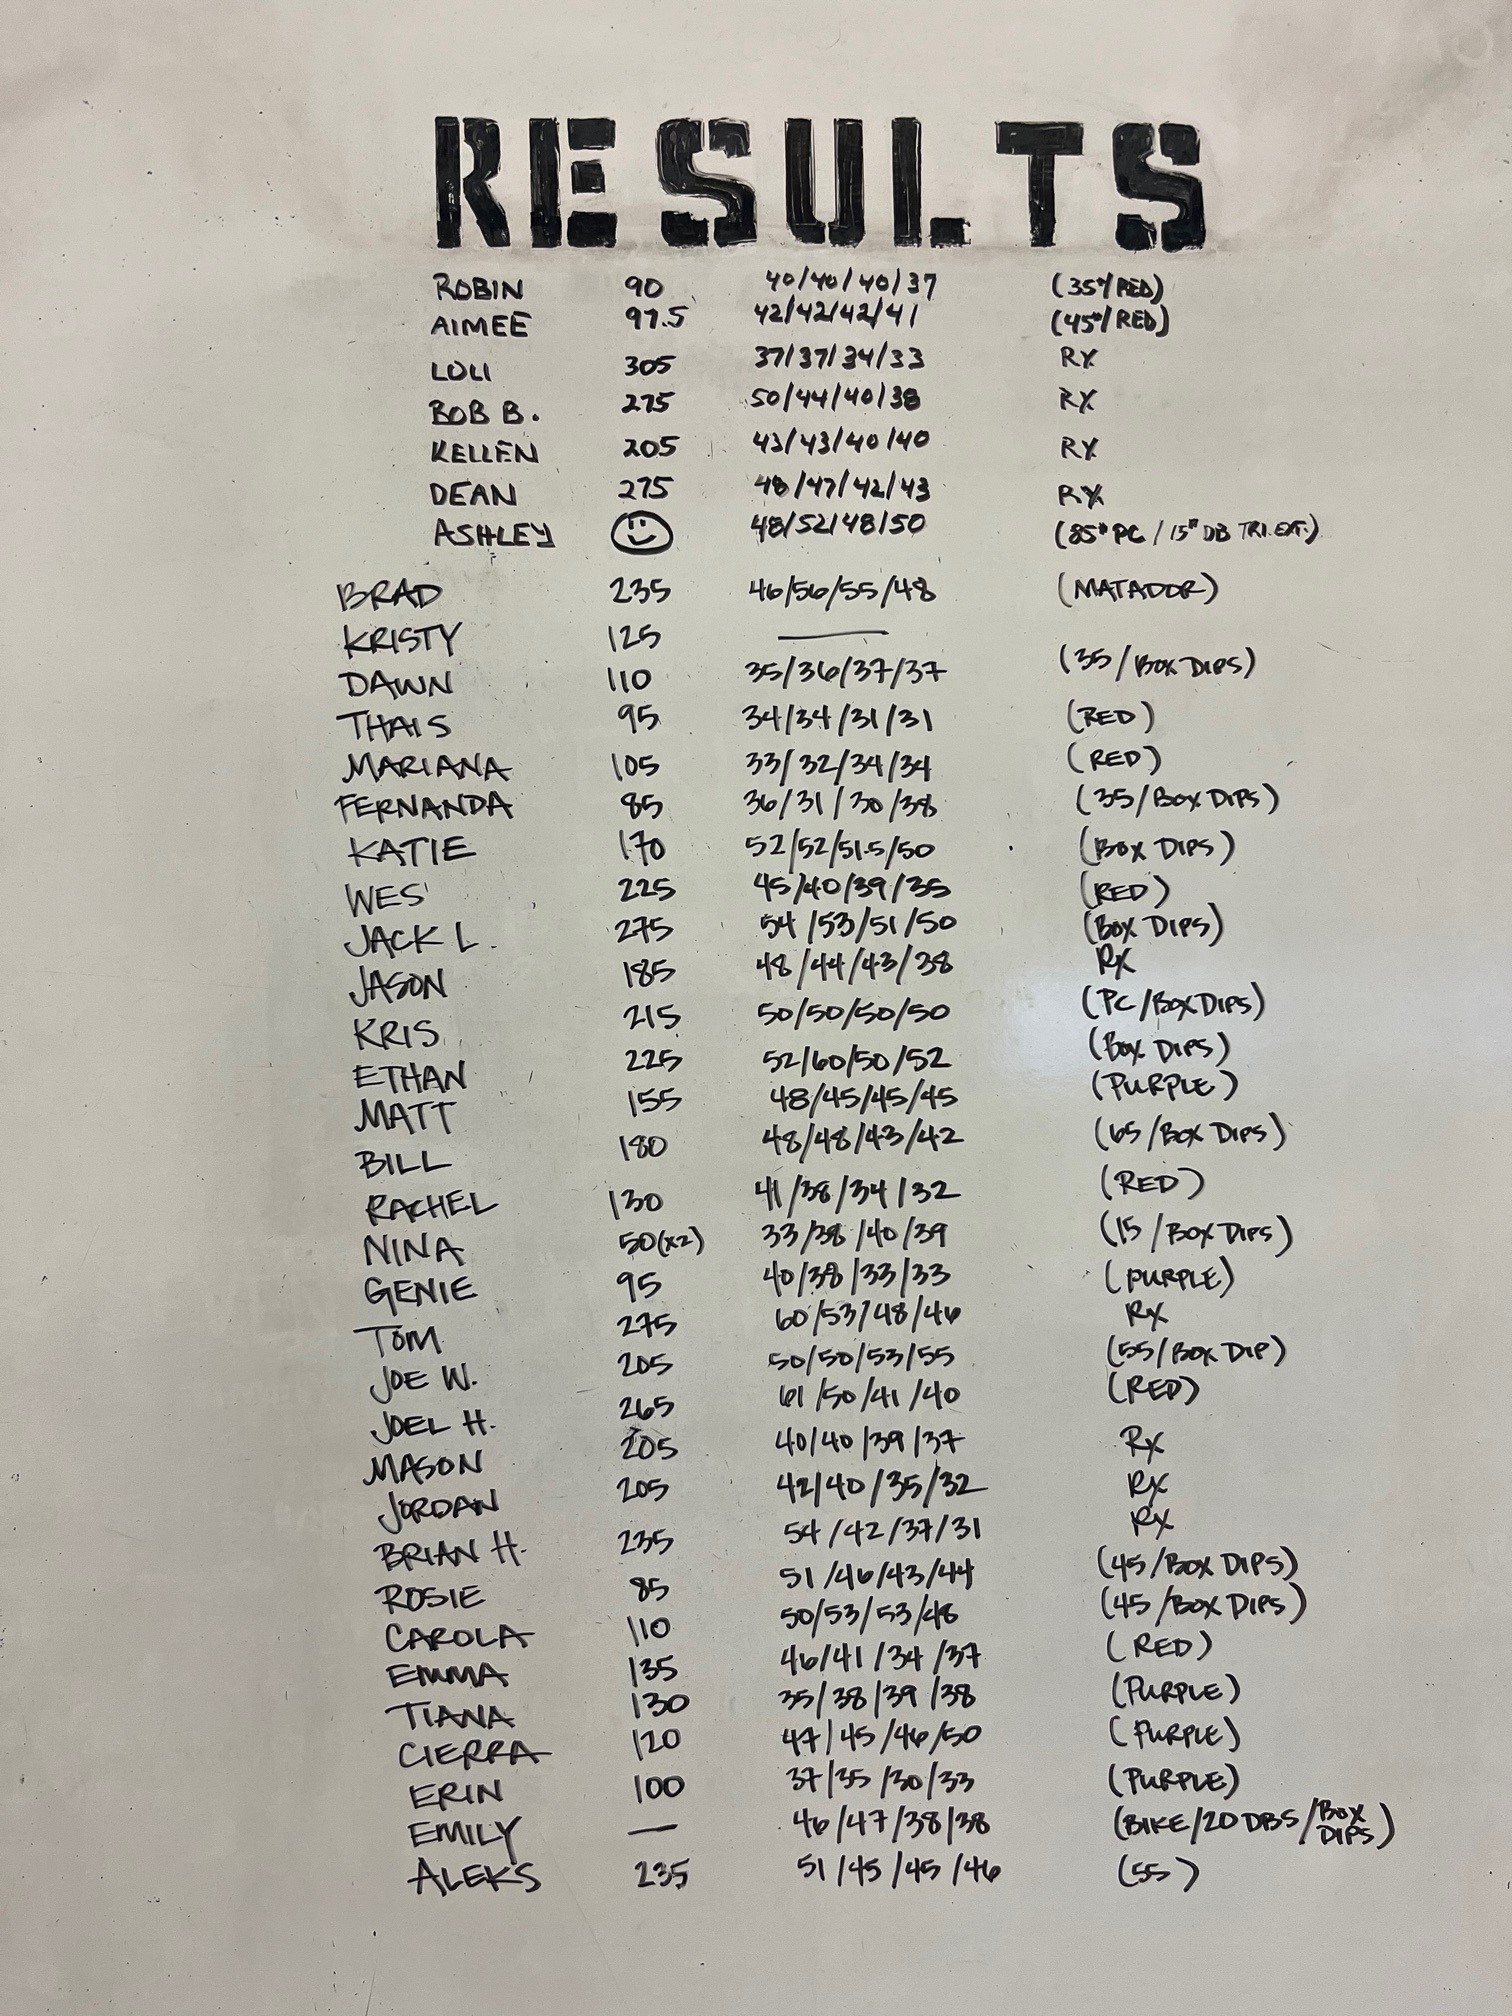 RESULTS
ROBIN 90 40/40/40/37 (35#/RED)
AIMEE 97.5 42/42/42/41 (45#/RED)
LOLI 305 37/37/34/33 RX
BOB B. 275 50/44/40/38 RX
KELLEN 205 43/43/40/40 RX
DEAN 275 48/47/42/43 RX
ASHLEY 48/52/48/50 (85# PC / 15# DB TRI. EXT.)
BRAD 235 46/56/55/48 (MATADOR)
KRISTY 125 —
DAWN 110 35/36/37/37 (35/BOX DIPS)
THAIS 95 34/34/31/31 (RED)
MARIANA 105 33/32/34/34 (RED)
FERNANDA 85 36/31/30/38 (35/BOX DIPS)
KATIE 170 52/52/51.5/50 (BOX DIPS)
WES 225 45/40/39/35 (RED)
JACK L. 275 54/53/51/50 (BOX DIPS)
JASON 185 48/44/43/38 Rx
KRIS 215 50/50/50/50 (PC/BOX DIPS)
ETHAN 225 52/60/50/52 (BOX DIPS)
MATT 155 48/45/45/45 (PURPLE)
BILL 180 48/48/43/42 (65/BOX DIPS)
RACHEL 130 41/38/34/32 (RED)
NINA 50(x2) 33/38/40/39 (15/BOX DIPS)
GENIE 95 40/38/33/33 (PURPLE)
TOM 275 60/53/48/46 Rx
JOE W. 205 50/50/53/55 (55/BOX DIP)
JOEL H. 265 61/50/41/40 (RED)
MASON 205 40/40/39/37 Rx
JORDAN 205 42/40/35/32 Rx
BRIAN H. 235 54/42/37/31 Rx
ROSIE 85 51/46/43/44 (45/BOX DIPS)
CAROLA 110 50/53/53/48 (45/BOX DIPS)
EMMA 135 46/41/34/37 (RED)
TIANA 130 35/38/39/38 (PURPLE)
CIERRA 120 47/45/46/50 (PURPLE)
ERIN 100 37/35/30/33 (PURPLE)
EMILY — 46/47/38/38 (BIKE/20 DBS/BOX DIPS)
ALEKS 235 51/45/45/46 (55)